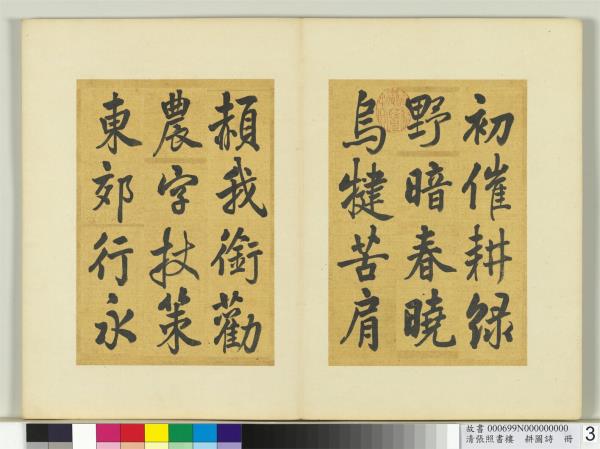 初催耕緑
野暗春曉
烏犍苦肩
頳我銜勸
農字杖策
東郊行永
故書 000699N000000000
清張照書樓 耕圖詩 冊
3